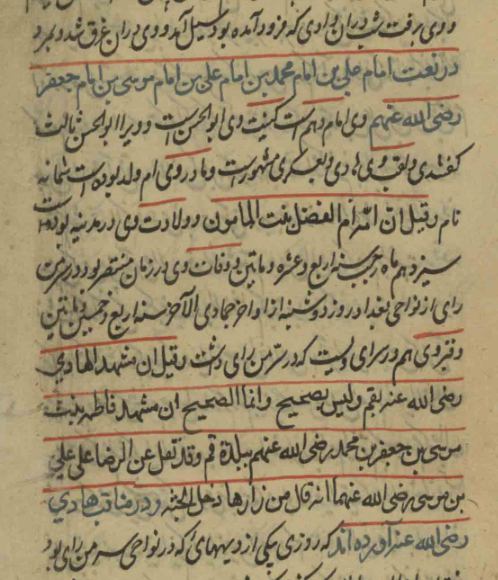 ووی برفت شب در آن وادی که فرود آمده بود سیل آمد و وی در آن غرق شد و بمرد
در نعت امام علی بن امام محمد بن امام علی بن امام موسی بن امام جعفر
رضی الله عنهم وی امام دهم است کنیت وی ابوالحسن است و ویرا ابوالحسن ثالث
گفتندی ولقب وی هادی و بعسکری مشهورست و مادر وی ام ولد بوده است شمانه
نام وقیل ان امه ام الفضل بنت المامون و ولادت وی در مدینه بوده است
سیزدهم ماه رجب سنه اربع وعشره ومایتین و وفات وی در زمان منتصر بود در سر من
رای از نواحی بغداد روز دوشنبه از اواخر جمادی الآخر سنه اربع وخمسین ومایتین
وقبر وی هم در سرای ویست که در سر من رای داشت وقیل ان مشهد الهادی
رضی الله عنه بقم ولیس بصحیح وانما الصحیح ان مشهد فاطمه بنت
موسی بن جعفر بن محمد رضی الله عنهم ببلدة قم وقد نقل عن الرضا علی
بن موسی رضی الله عنهما انه قال من زارها دخل الجنه و در مناقب هادی
رضی الله عنه آورده اند که روزی یکی از دیههای که در نواحی سر من رای بود